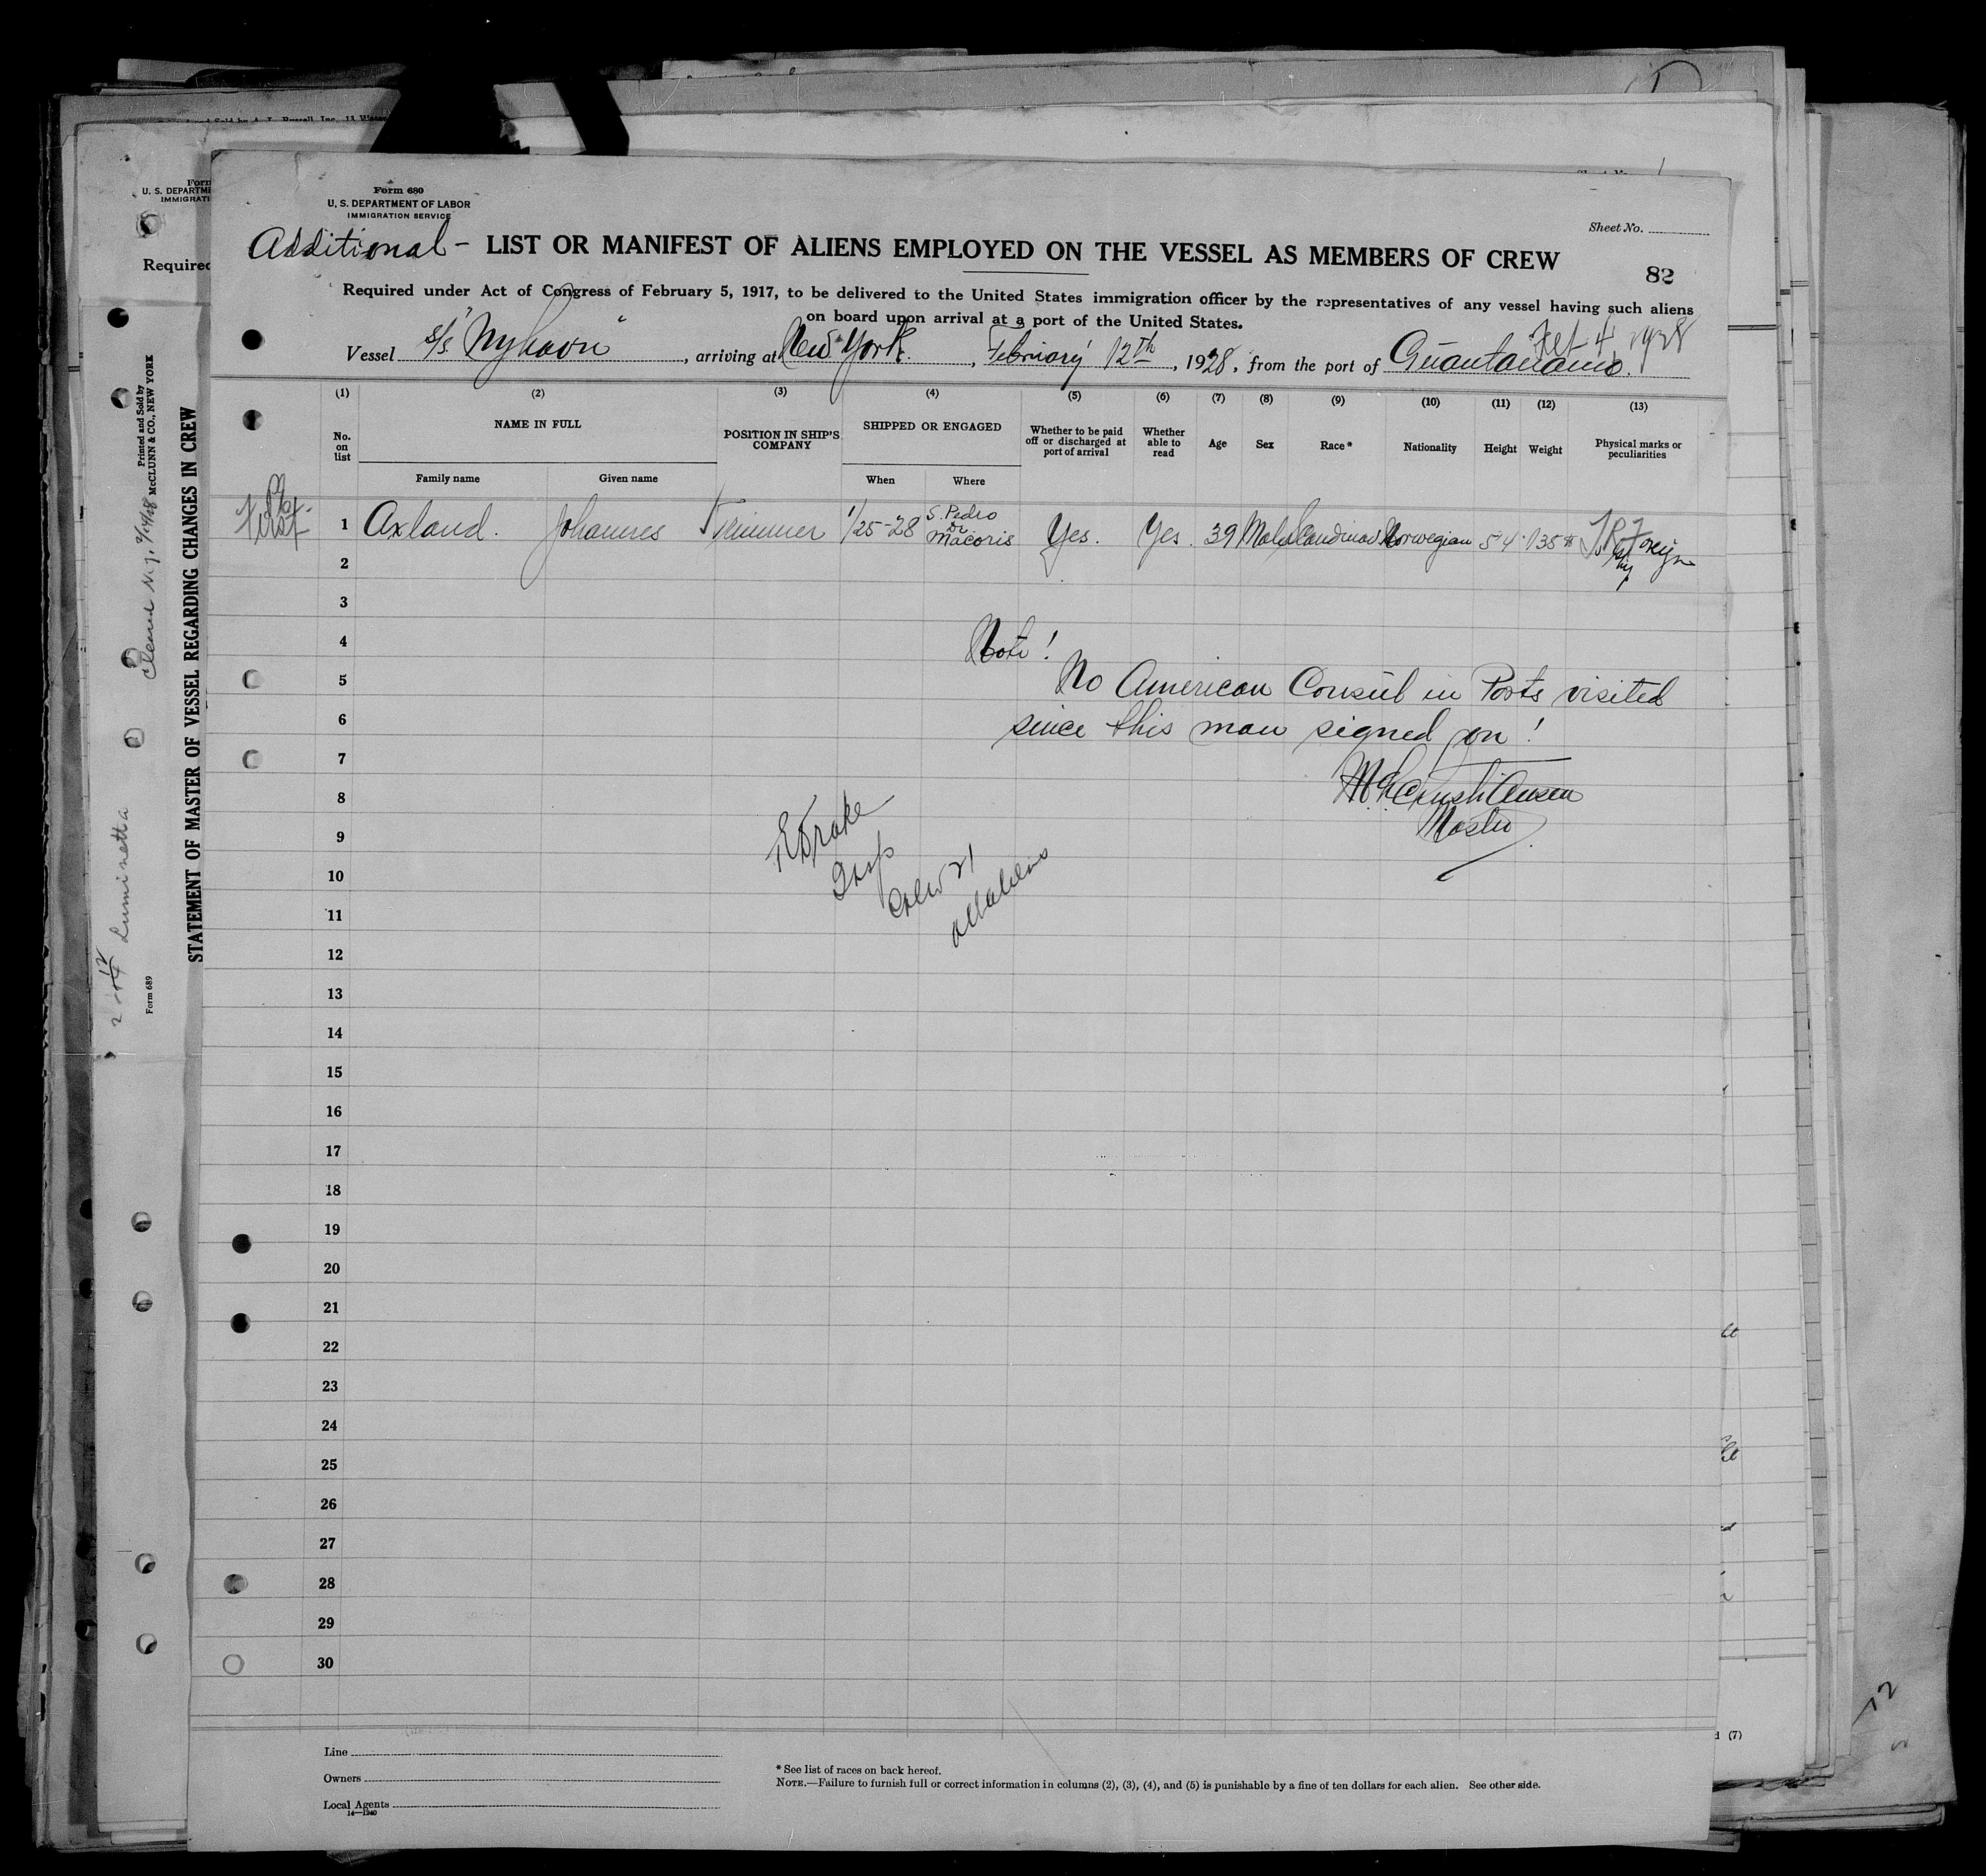 Form 680
U. S. DEPARTMENT OF LABOR
IMMIGRATION SERVICE
Sheet No.
Additional - LIST OR MANIFEST OF ALIENS EMPLOYED ON THE VESSEL AS MEMBERS OF CREW
82
Required under Act of Congress of February 5, 1917, to be delivered to the United States immigration officer by the representatives of any vessel having such aliens
on board upon arrival at a port of the United States.
Feb 4, 1928
Vessel s/s "Nyhavn", arriving at New York, February 12th, 1928, from the port of Guantanamo.
(1) (2) (3) (4) (5) (6) (7) (8) (9) (10) (11) (12) (13)
No. on list
NAME IN FULL
Family name Given name
POSITION IN SHIP'S COMPANY
SHIPPED OR ENGAGED
When Where
Whether to be paid off or discharged at port of arrival
Whether able to read
Age Sex Race* Nationality Height Weight
Physical marks or peculiarities
First 1 Axland. Johannes Trimmer 1/25-28 S. Pedro de Macoris Yes. Yes. 39 Male Scandinav Norwegian 5'4" 135# Foreign
2
3
4
Note!
5
No American Consul in Ports visited
6
since this man signed on!
7
8
Master
9
Drake
10
Insp
Crew 21
all aliens
11
12
13
14
15
16
17
18
19
20
21
22
23
24
25
26
27
28
29
30
Line
Owners
Local Agents
14—1240
* See list of races on back hereof.
NOTE.—Failure to furnish full or correct information in columns (2), (3), (4), and (5) is punishable by a fine of ten dollars for each alien. See other side.
Form
U. S. DEPARTM
IMMIGRATI
Required
STATEMENT OF MASTER OF VESSEL REGARDING CHANGES IN CREW
Printed and Sold by
McCLUNN & CO., NEW YORK
Form 689
Luminetta
(7)
12